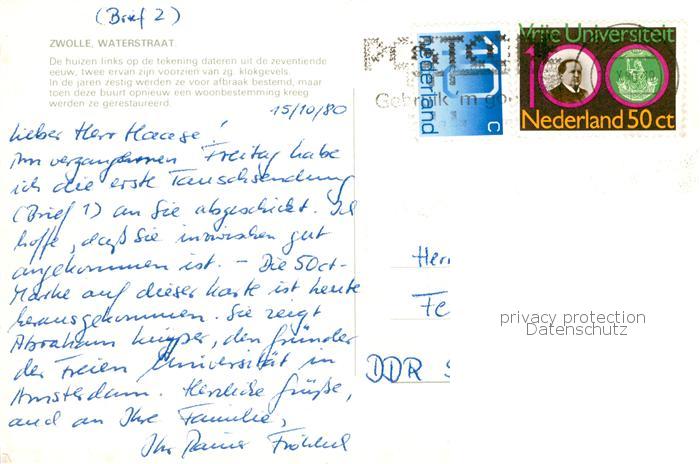 (Brief 2)
ZWOLLE, WATERSTRAAT.
De huizen links op de tekening dateren uit de zeventiende
eeuw, twee ervan zijn voorzien van zg. klokgevels.
In de jaren zestig werden ze voor afbraak bestemd, maar
toen deze buurt opnieuw een woonbestemming kreeg
werden ze gerestaureerd.
15/10/80
Lieber Herr Haase!
Am vergangenen Freitag habe
ich die erste Tauschsendung
(Brief 1) an Sie abgeschickt. Ich
hoffe, daß Sie inzwischen gut
angekommen ist. – Die 50ct-
Marke auf dieser Karte ist heute
herausgekommen. Sie zeigt
Abraham Kuyper, den Gründer
der Freien Universität in
Amsterdam. Herzliche Grüße,
auch an Ihre Familie,
Ihr Rainer Fröhlich
nederland
10 c
Vrije Universiteit
100
Nederland 50 ct
Gebruik 'm goe
Herr
Fe
DDR
privacy protection
Datenschutz